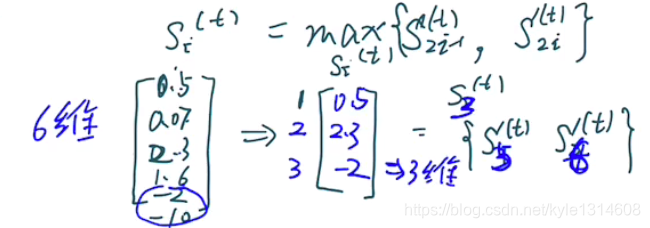 S_i^(t) = max_{S_i^(t)} {S'_{2i-1}^(t), S'_{2i}^(t)}
6维 [0.5 0.07 2.3 1.6 -2 -10] ⇒ 1 2 3 [0.5 2.3 -2] ⇒ 3维 = S_3^(t) {S'_5^(t) S'_6^(t)}
https://blog.csdn.net/kyle1314608